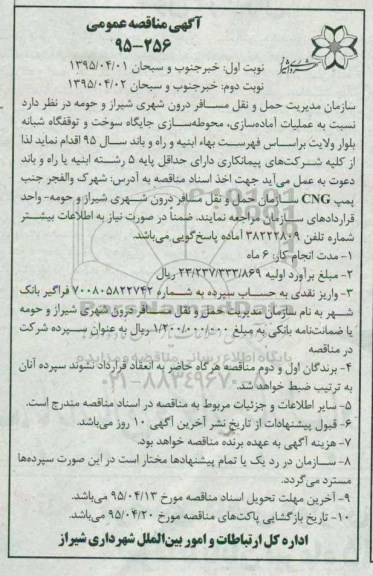 آگهی مناقصه عمومی
۹۵-۲۵۶
نوبت اول: خبرجنوب و سبحان ۱۳۹۵/۰۴/۰۱
نوبت دوم: خبرجنوب و سبحان ۱۳۹۵/۰۴/۰۲
سازمان مدیریت حمل و نقل مسافر درون شهری شیراز و حومه در نظر دارد
نسبت به عملیات آماده‌سازی، محوطه‌سازی جایگاه سوخت و توقفگاه شبانه
بلوار ولایت براساس فهرست بهاء ابنیه و راه و باند سال ۹۵ اقدام نماید لذا
از کلیه شرکت‌های پیمانکاری دارای حداقل پایه ۵ رشته ابنیه یا راه و باند
دعوت به عمل می‌آید جهت اخذ اسناد مناقصه به آدرس: شهرک والفجر جنب
پمپ CNG سازمان حمل و نقل مسافر درون شهری شیراز و حومه- واحد
قراردادهای سازمان مراجعه نمایند. ضمناً در صورت نیاز به اطلاعات بیشتر
شماره تلفن ۳۸۲۲۲۸۰۹ آماده پاسخ‌گویی می‌باشد.
۱- مدت انجام کار: ۶ ماه
۲- مبلغ برآورد اولیه ۲۳/۲۳۷/۳۳۳/۸۶۹ ریال
۳- واریز نقدی به حساب سپرده به شماره ۷۰۰۸۰۵۸۲۲۷۴۲ فراگیر بانک
شهر به نام سازمان مدیریت حمل و نقل مسافر درون شهری شیراز و حومه
یا ضمانت‌نامه بانکی به مبلغ ۱/۲۰۰/۰۰۰/۰۰۰ ریال به عنوان سپرده شرکت
در مناقصه
۴- برندگان اول و دوم مناقصه هرگاه حاضر به انعقاد قرارداد نشوند سپرده آنان
به ترتیب ضبط خواهد شد.
۵- سایر اطلاعات و جزئیات مربوط به مناقصه در اسناد مناقصه مندرج است.
۶- قبول پیشنهادات از تاریخ نشر آخرین آگهی ۱۰ روز می‌باشد.
۷- هزینه آگهی به عهده برنده مناقصه خواهد بود.
۸- سازمان در رد یک یا تمام پیشنهادها مختار است در این صورت سپرده‌ها
مسترد می‌گردد.
۹- آخرین مهلت تحویل اسناد مناقصه مورخ ۹۵/۰۴/۱۳ می‌باشد.
۱۰- تاریخ بازگشایی پاکت‌های مناقصه مورخ ۹۵/۰۴/۲۰ می‌باشد.
اداره کل ارتباطات و امور بین‌الملل شهرداری شیراز